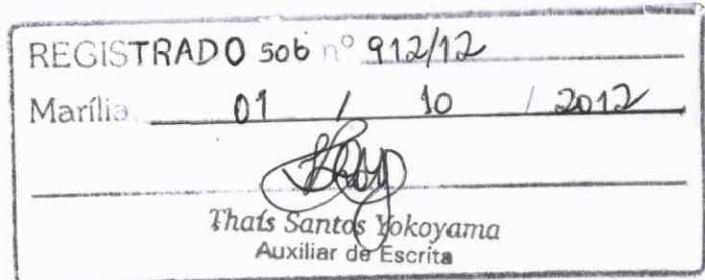 REGISTRADO sob nº 912/12
Marília, 01 / 10 / 2012
Thaís Santos Yokoyama
Auxiliar de Escrita